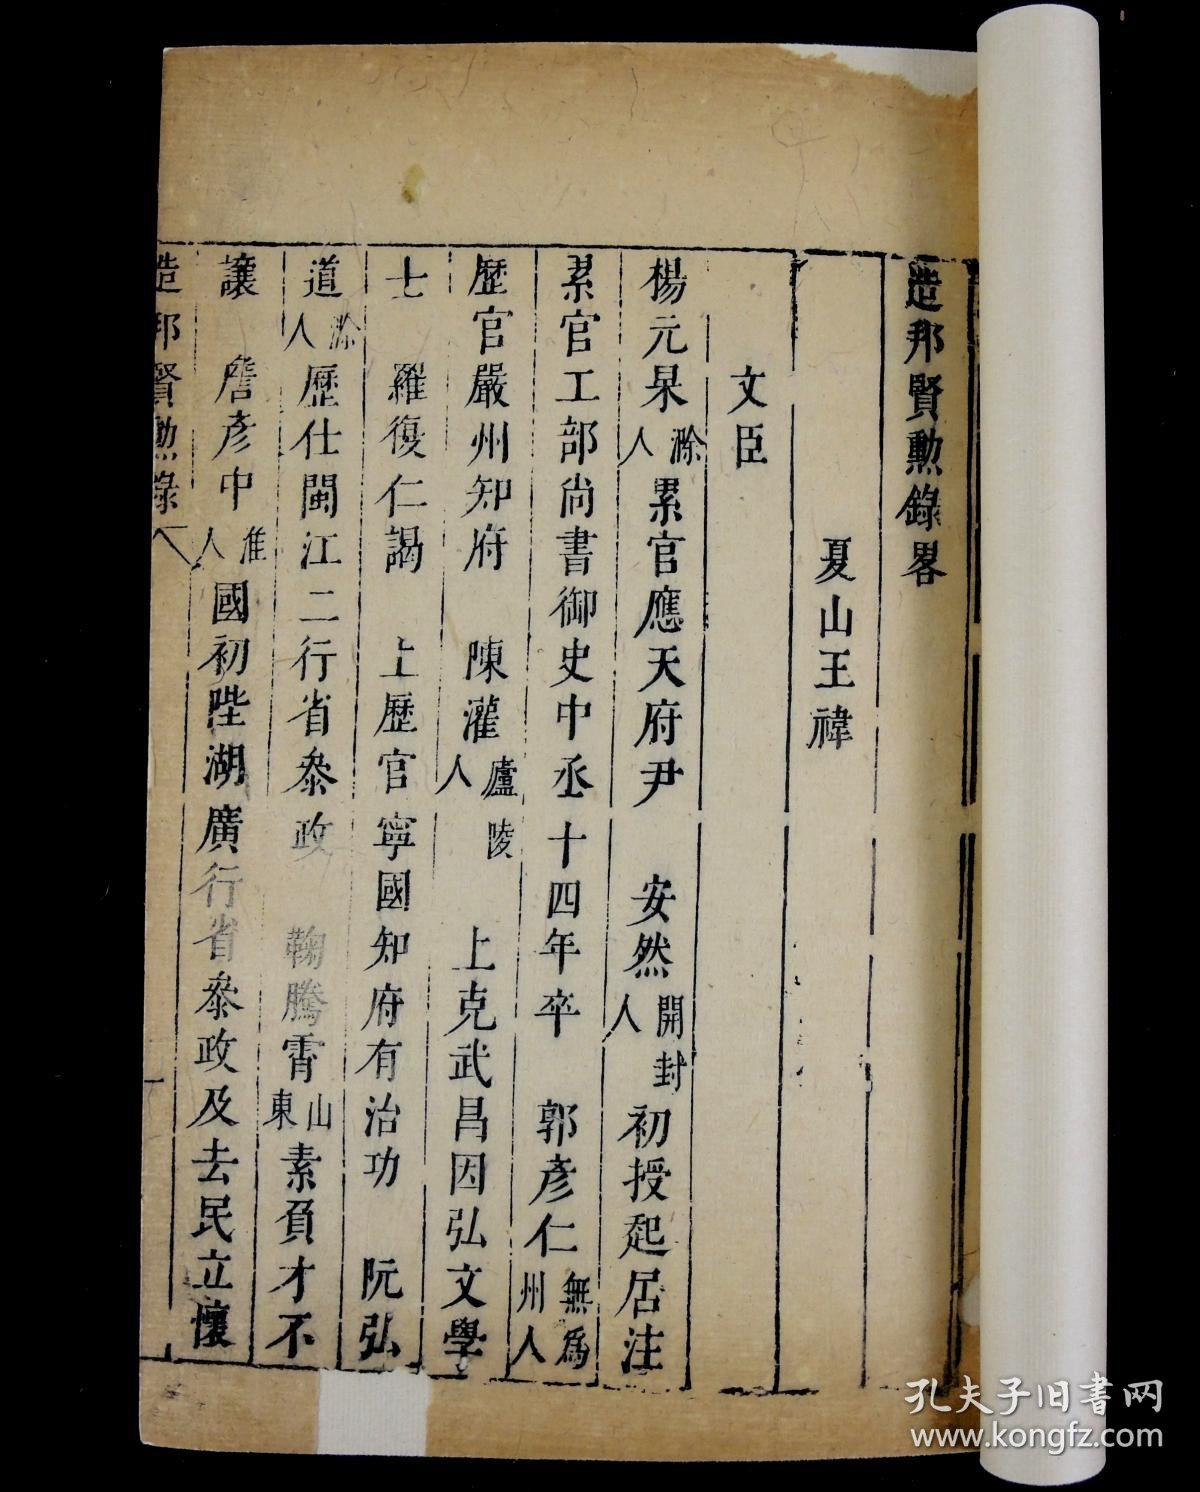 造邦賢勲錄畧
夏山王禕
文臣
楊元杲滁人累官應天府尹　安然開封人初授起居注
累官工部尚書御史中丞十四年卒　郭彥仁無爲州人
歷官嚴州知府　陳灌廬陵人　上克武昌因弘文學
士　羅復仁謁　上歷官寧國知府有治功　阮弘
道滁人歷仕閩江二行省叅政　鞠騰霄山東素負才不
讓　詹彥中淮人國初陞湖廣行省叅政及去民立懷
造邦賢勲錄
孔夫子旧书网
www.kongfz.com